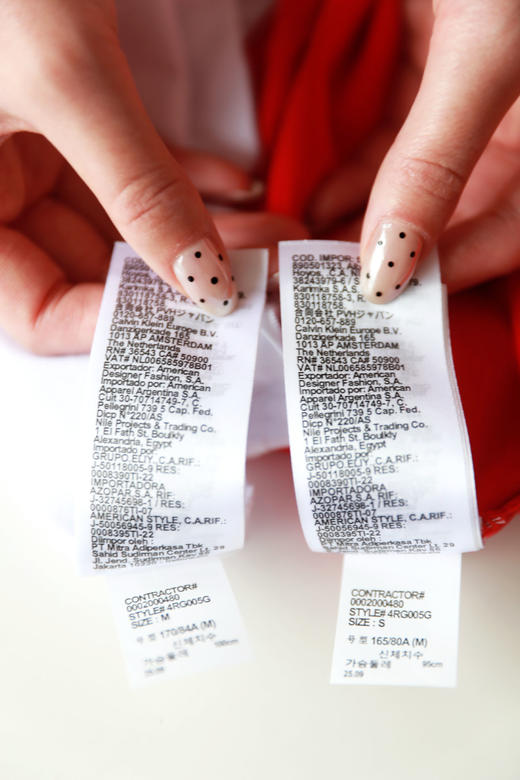 890501323, A
Hoyos, C.A. N
38243979-6 /
Karimka S.A.S.
830118758-3,
830118758
合同会社 PVHジャパン
0120-657-889
Calvin Klein Europe B.V.
Danzigerkade 165
1013 AP AMSTERDAM
The Netherlands
RN# 36543 CA# 50900
VAT# NL006585978B01
Exportador: American
Designer Fashion, S.A.
Importado por: American
Apparel Argentina S.A.
Cuit 30-70714749-7, C.
Pellegrini 739 5 Cap. Fed.
Dicp N°220/AS
Nile Projects & Trading Co.
1 El Fath St, Boulkly
Alexandria, Egypt
Importado por
GRUPO ELIY, C.A.RIF.:
J-50118005-9 RES:
0008390TI-22
IMPORTADORA
AZOPAR,S.A. RIF:
J-32745698-1 / RES:
000876TI-07
AMERICAN STYLE, C.A.RIF.:
J-50056945-9 RES:
0008395TI-22
Diimpor oleh :
PT Mitra Adiperkasa Tbk
Sahid Sudirman Center Lt. 29
Jl. Jend. Sudirman Kav 86
Jakarta
CONTRACTOR#
0002000480
STYLE# 4RG005G
SIZE : M
호칭 170/84A (M)
신체치수
가슴둘레 100cm
COD. IMPOR-S
890501323,
Hoyos, C.A. N
38243979-6 / S
Karimka S.A.S.
830118758-3, R
830118758
合同会社 PVHジャパン
0120-657-889
Calvin Klein Europe B.V.
Danzigerkade 165
1013 AP AMSTERDAM
The Netherlands
RN# 36543 CA# 50900
VAT# NL006585978B01
Exportador: American
Designer Fashion, S.A.
Importado por: American
Apparel Argentina S.A.
Cuit 30-70714749-7, C.
Pellegrini 739 5 Cap. Fed.
Dicp N°220/AS
Nile Projects & Trading Co.
1 El Fath St, Boulkly
Alexandria, Egypt
Importado por
GRUPO ELIY, C.A.RIF.:
J-50118005-9 RES:
0008390TI-22
IMPORTADORA
AZOPAR,S.A. RIF:
J-32745698-1 / RES:
000876TI-07
AMERICAN STYLE, C.A.RIF.:
J-50056945-9 RES:
0008395TI-22
Diimpor oleh :
PT Mitra Adiperkasa Tbk
Sahid Sudirman Center Lt. 29
CONTRACTOR#
0002000480
STYLE# 4RG005G
SIZE : S
호칭 165/80A (M)
신체치수
가슴둘레 95cm
25.09